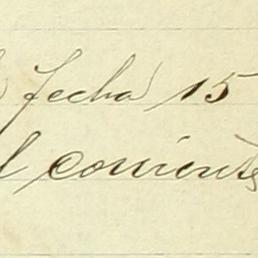 fecha 15
l corriente